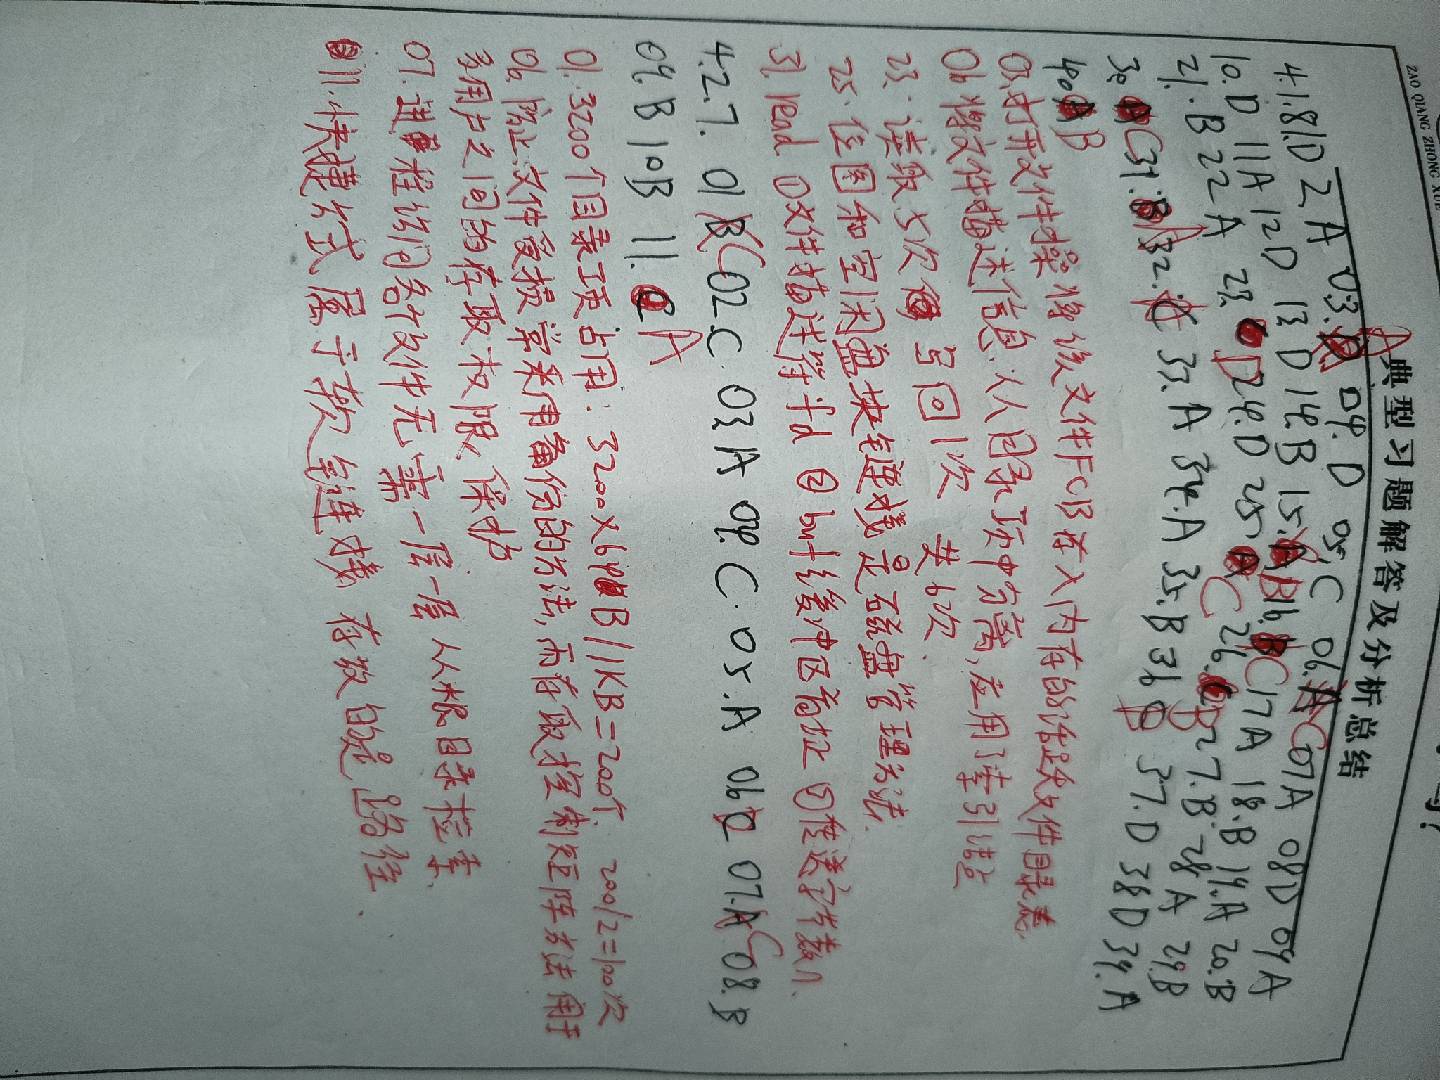 ZAO QIANG ZHONG XUE
典型习题解答及分析总结
4.1.8 1.D 2.A 03.A 04.D 05.C 06.C 07A 08D 09A
10.D 11A 12D 13.D 14.B 15.B 16.C 17A 18.B 19.A 20.B
21.B 22A 23.D 24.D 25.C 26.B 27.B 28A 29B
30.C 31.A 32.C 33.A 34.A 35.B 36 37.D 38D 39.A
40 B
03.打开文件操 将该文件FCB存入内存的活跃文件目录表.
06 将文件描述信息从目录项中分离,应用了索引结点
23. 读取5次 写回1次 共6次.
25. 位图和空闲盘块链接是磁盘管理方法.
31. read ①文件描述符fd ②buf缓冲区首址 ③传送字节数n.
4.2.7. 01 C 02.C 03.A 04.C 05.A 06 07.C 08.B
09.B 10B 11. A
01. 3200个目录项占用: 3200×64B/1KB=200个. 200/2=100次
06. 防止文件受损常采用备份的方法,而存取控制矩阵方法用于
多用户之间的存取权限保护
07. 进程访问各文件无需一层一层从根目录检索.
11. 快捷方式属于软链接 存放的是路径.